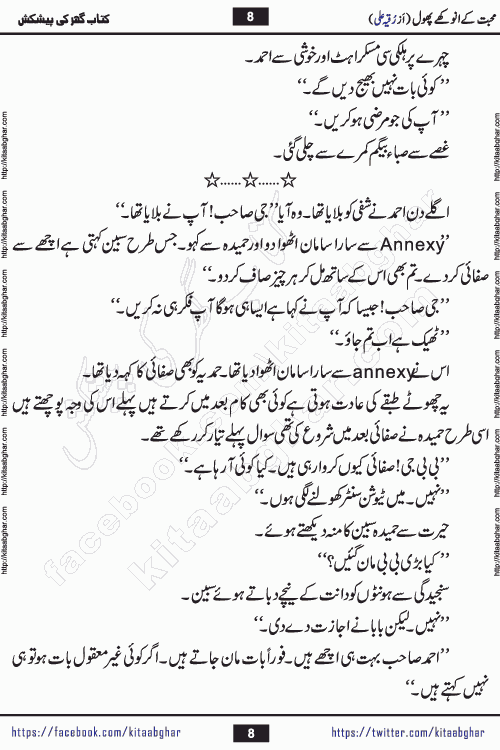 محبت کے انوکھے پھول (از رقیہ علی) 8 کتاب گھر کی پیشکش
چہرے پر ہلکی سی مسکراہٹ اور خوشی سے احمد۔
’’کوئی بات نہیں بھیج دیں گے۔‘‘
’’آپ کی جو مرضی ہو کریں۔‘‘
غصے سے صباء بیگم کمرے سے چلی گئی۔
☆......☆......☆
اگلے دن احمد نے شفی کو بلایا تھا۔ وہ آیا ’’جی صاحب! آپ نے بلایا تھا۔‘‘
’’Annexy سے سارا سامان اٹھوا دو اور حمیدہ سے کہو۔ جس طرح سبین کہتی ہے اچھے سے
صفائی کر دے۔ تم بھی اس کے ساتھ مل کر ہر چیز صاف کر دو۔‘‘
’’جی صاحب! جیسا کہ آپ نے کہا ہے ایسا ہی ہوگا آپ فکر ہی نہ کریں۔‘‘
’’ٹھیک ہے اب تم جاؤ۔‘‘
اس نے annexy سے سارا سامان اٹھوا دیا تھا۔ حمدیہ کو بھی صفائی کا کہہ دیا تھا۔
یہ چھوٹے طبقے کی عادت ہوتی ہے کوئی بھی کام بعد میں کرتے ہیں پہلے اس کی وجہ پوچھتے ہیں
اسی طرح حمیدہ نے صفائی بعد میں شروع کی تھی سوال پہلے تیار کر رکھے تھے۔
’’بی بی جی! صفائی کیوں کروا رہی ہیں۔ کیا کوئی آ رہا ہے۔‘‘
’’نہیں۔ میں ٹیوشن سنٹر کھولنے لگی ہوں۔‘‘
حیرت سے حمیدہ سبین کا منہ دیکھتے ہوئے۔
’’کیا بڑی بی بی مان گئیں؟‘‘
سنجیدگی سے ہونٹوں کو دانت کے نیچے دباتے ہوئے سبین۔
’’نہیں۔ لیکن بابا نے اجازت دے دی۔‘‘
’’احمد صاحب بہت ہی اچھے ہیں۔ فوراً بات مان جاتے ہیں۔ اگر کوئی غیر معقول بات ہو تو ہی
نہیں کہتے ہیں۔‘‘
https://facebook.com/kitaabghar 8 https://twitter.com/kitaabghar
http://kitaabghar.com http://kitaabghar.com http://kitaabghar.com http://kitaabghar.com http://kitaabghar.com http://kitaabghar.com
http://kitaabghar.com http://kitaabghar.com http://kitaabghar.com http://kitaabghar.com http://kitaabghar.com http://kitaabghar.com